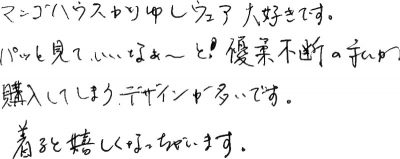 マンゴハウスかりゆしウェア大好きです。
パッと見て、いいなぁ〜と!優柔不断の私が
購入してしまうデザインが多いです。
着ると嬉しくなっちゃいます。